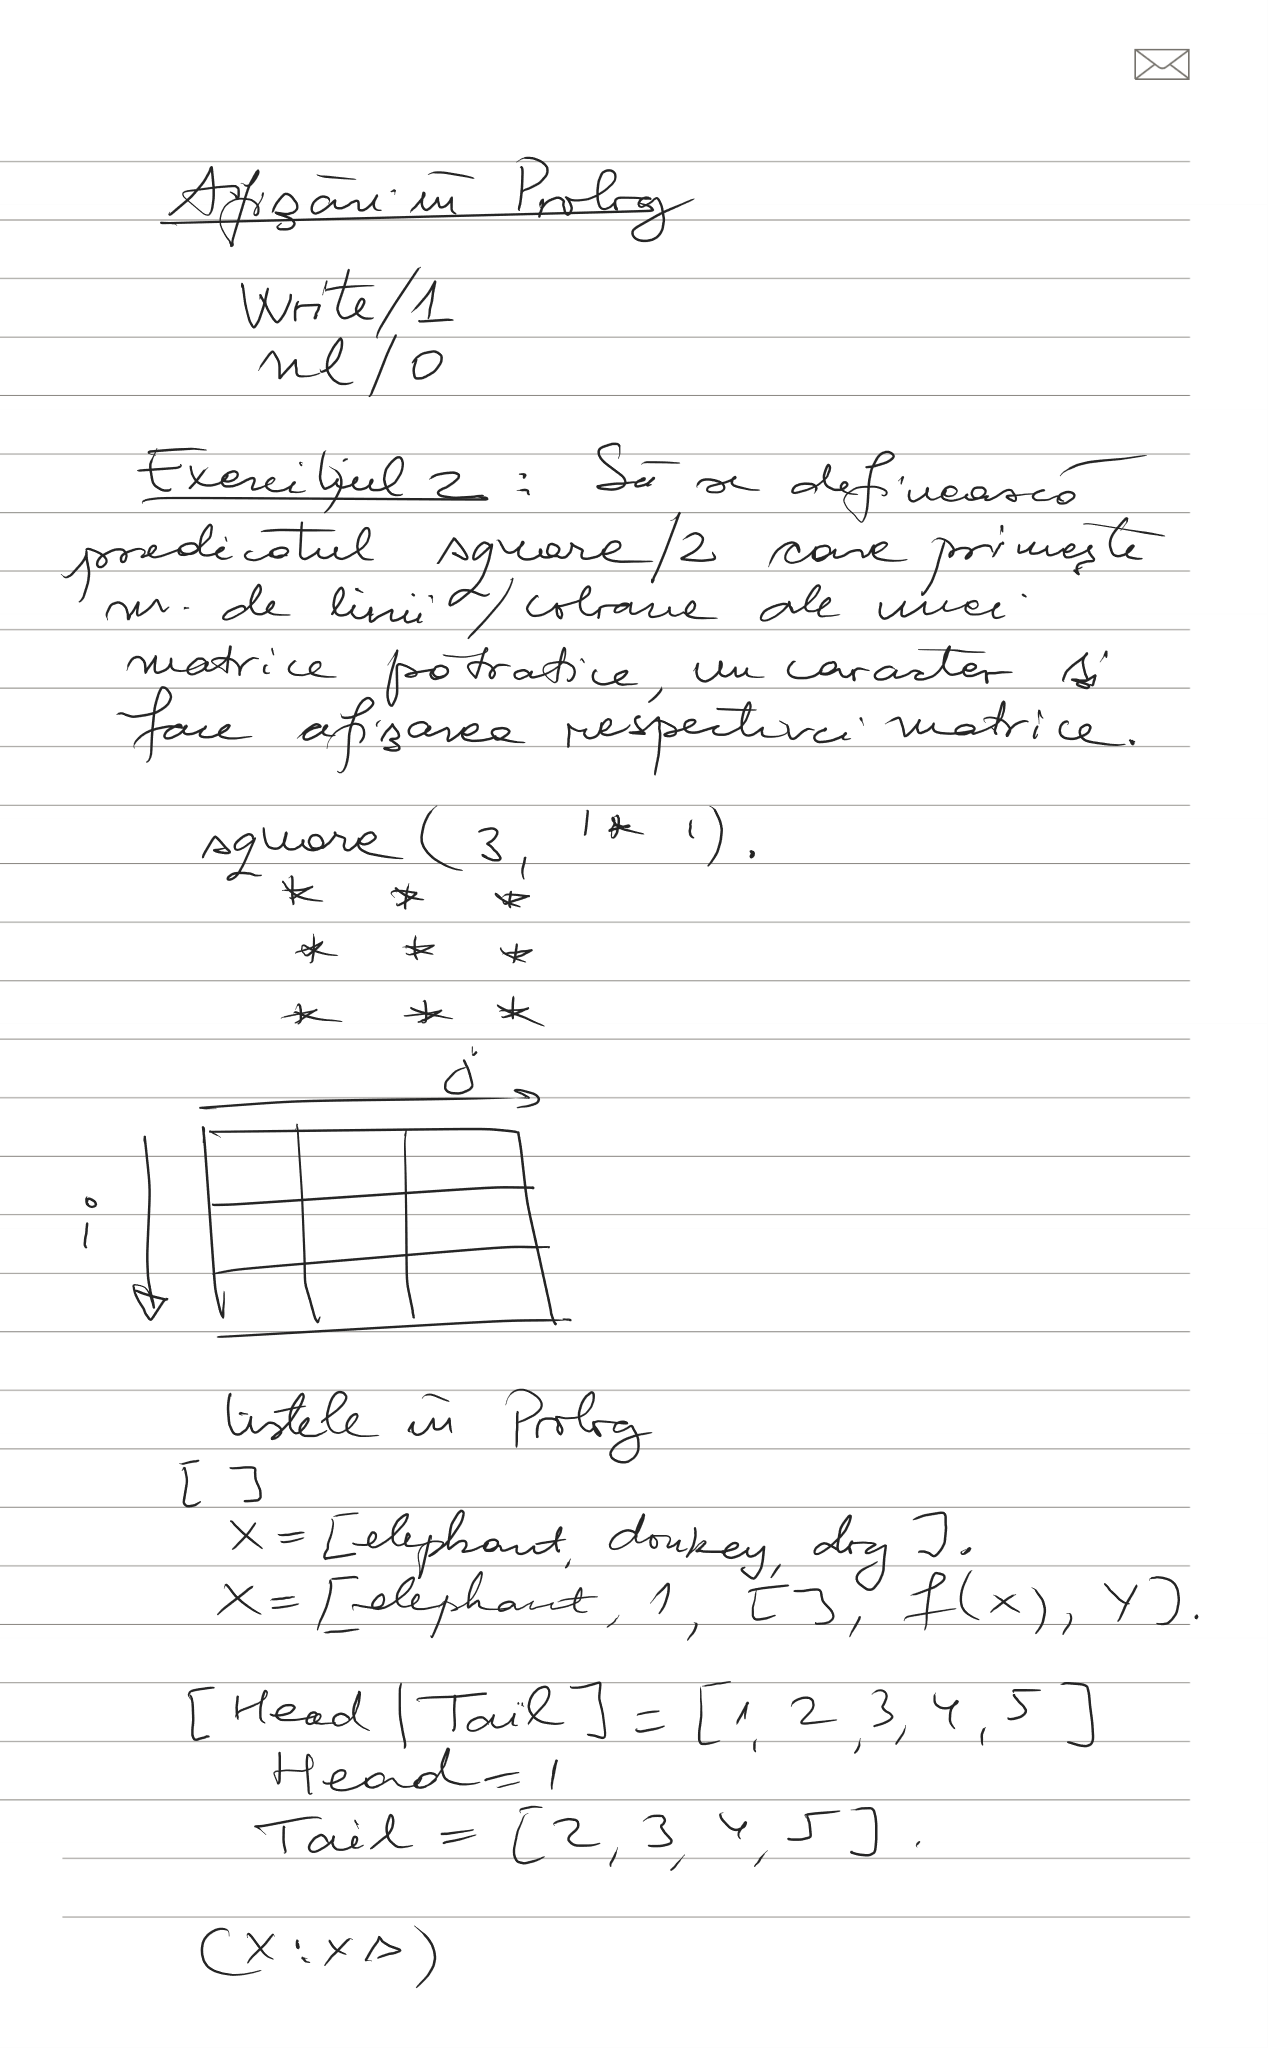 Afișări în Prolog
Write/1
nl/0
Exercițiul 2: Să se definească
predicatul square/2 care primește
nr. de linii/coloane ale unei
matrice pătratice, un caracter și
face afișarea respectivei matrice.
square (3, '*').
* * *
* * *
* * *
j
i
Listele în Prolog
[ ]
X = [elephant, donkey, dog].
X = [elephant, 1, [], f(x), Y].
[Head | Tail] = [1, 2, 3, 4, 5]
Head = 1
Tail = [2, 3, 4, 5].
(x:xs)